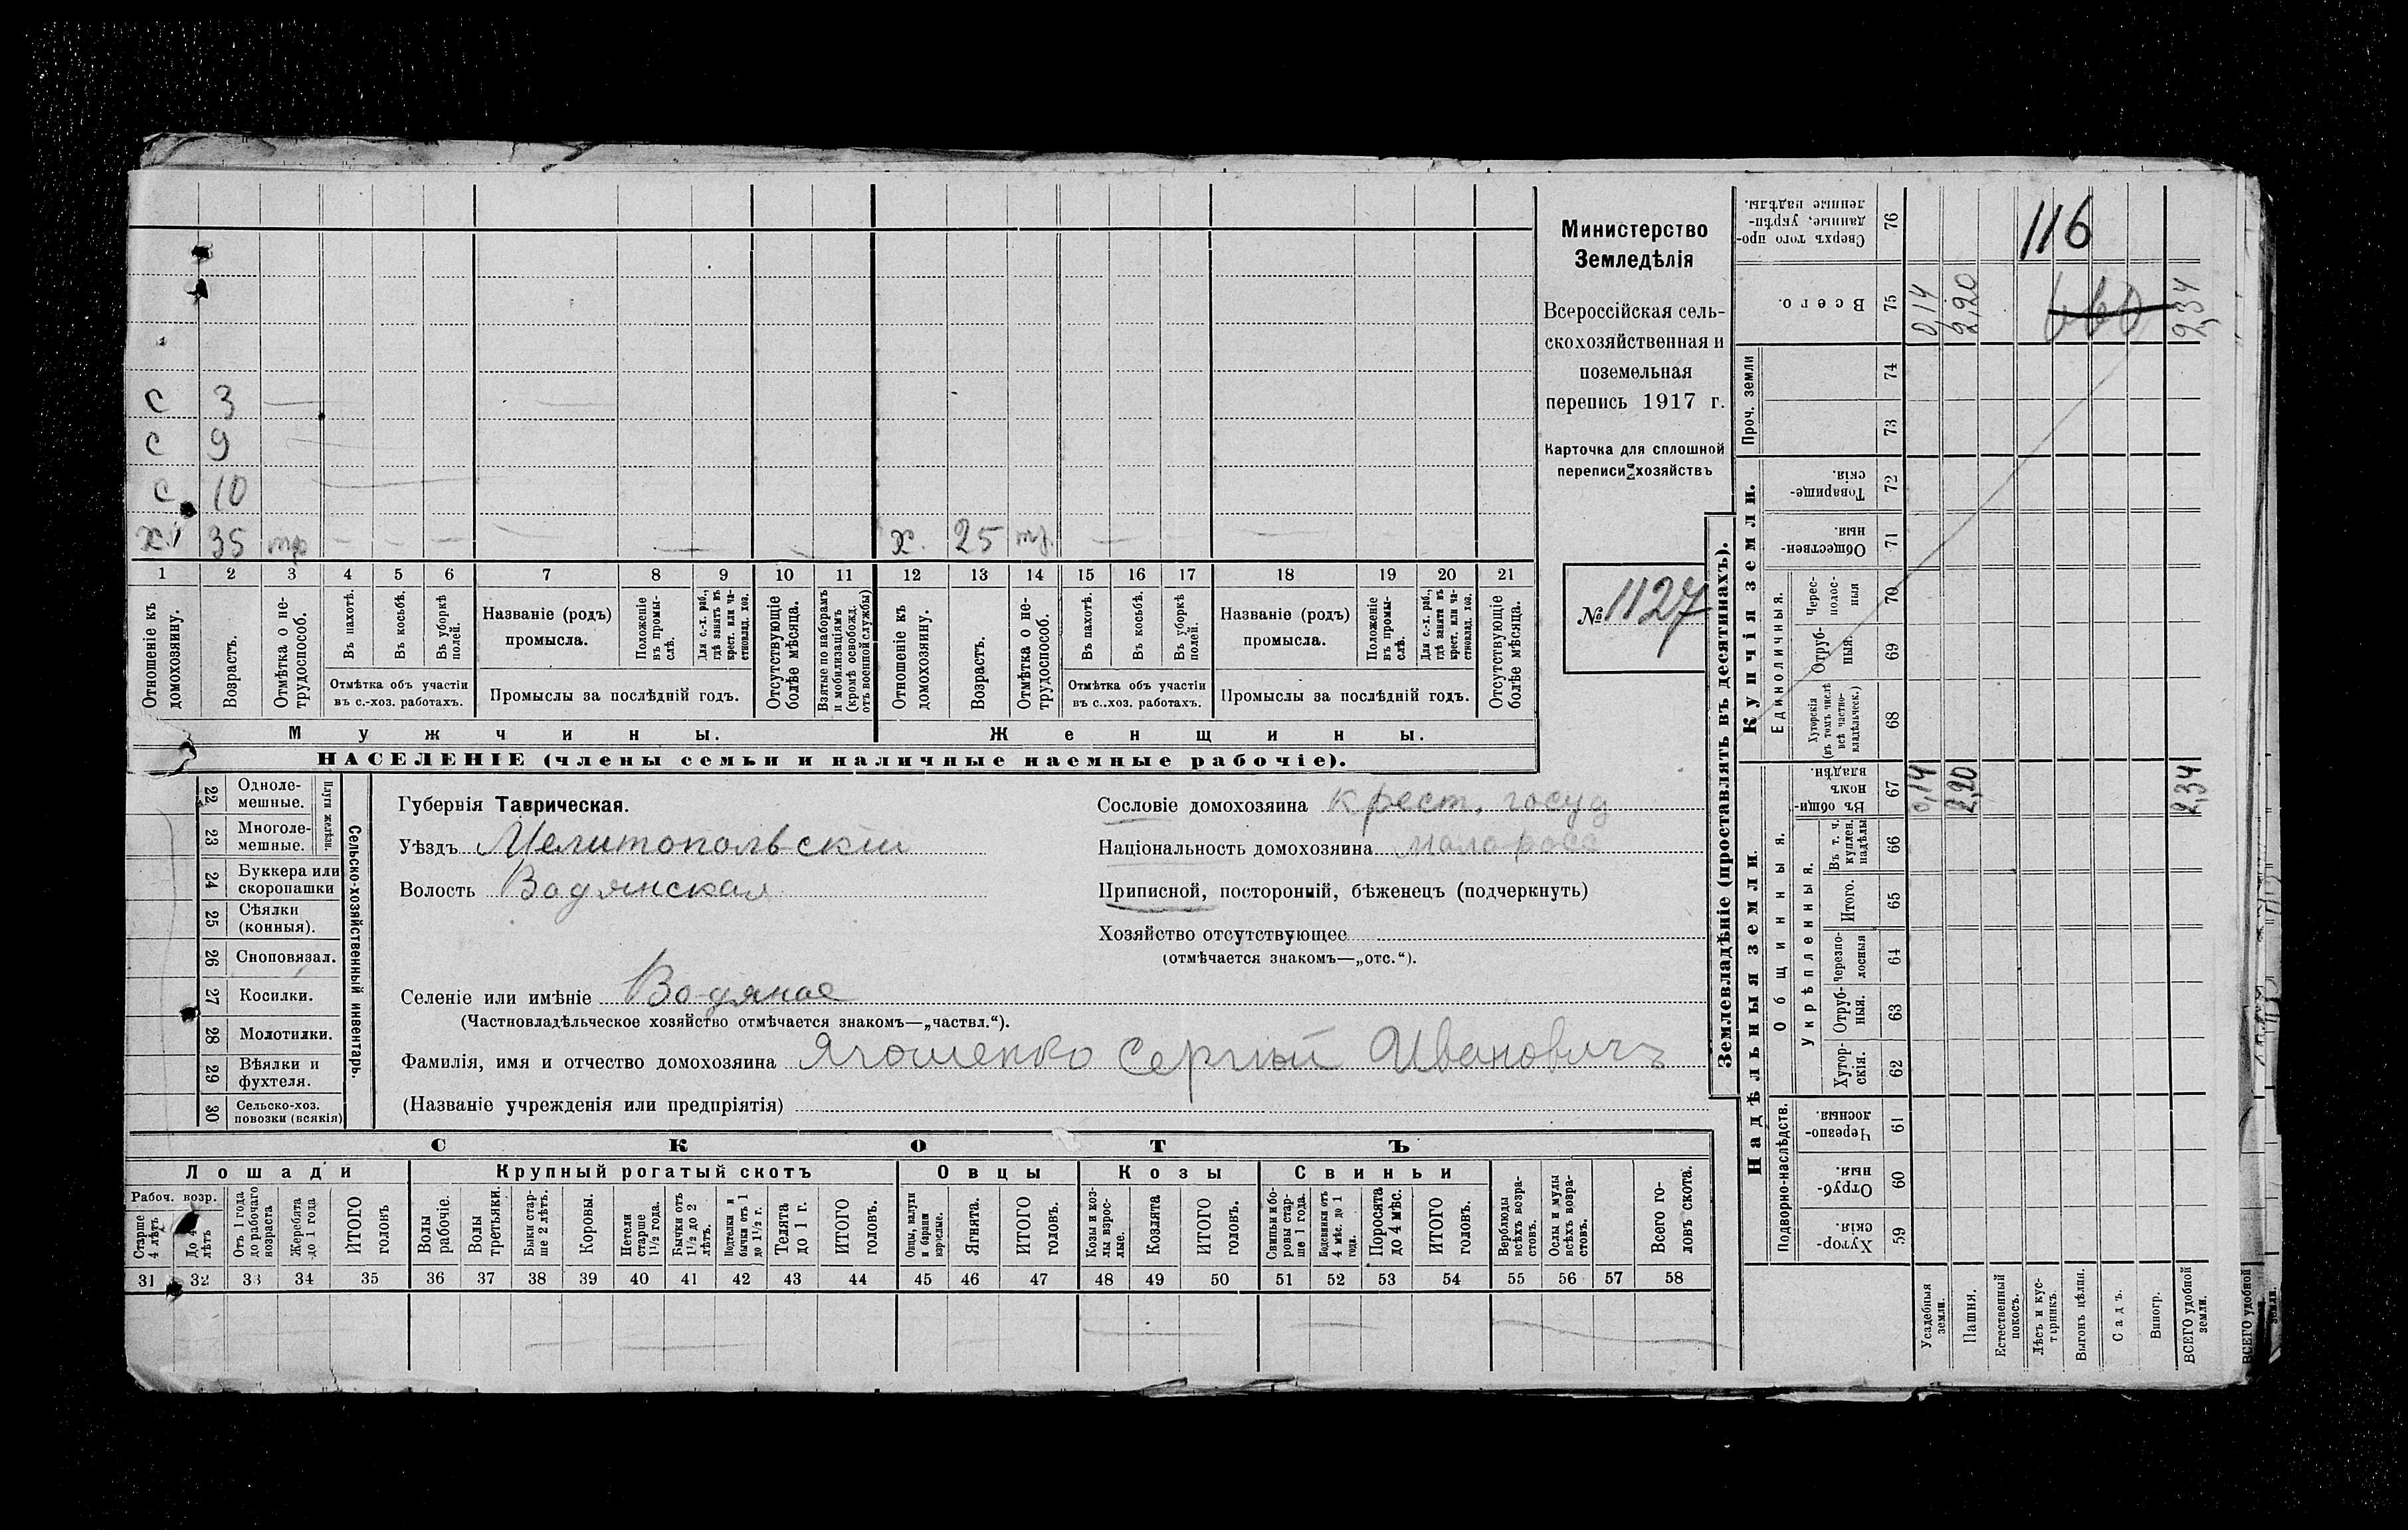 с 3 —
с 9
с 10
х. 35 тр — — — — — — х. 25 тр. — — —
1 2 3 4 5 6 7 8 9 10 11 12 13 14 15 16 17 18 19 20 21
Отношеніе къ домохозяину.
Возрастъ.
Отмѣтка о не-
трудоспособ.
Въ пахотѣ.
Въ косьбѣ.
Въ уборкѣ
полей.
Отмѣтка объ участіи
въ с.-хоз. работахъ.
Названіе (родъ)
промысла.
Положеніе
въ промы-
слѣ.
Для с.-х. раб.,
гдѣ занятъ въ
крест. или ча-
стновлад. хоз.
Промыслы за послѣдній годъ.
Отсутствующіе
болѣе мѣсяца.
Взятые по наборамъ
и мобилизаціямъ
(кромѣ освобожд.
отъ военной службы)
Отношеніе къ
домохозяину.
Возрастъ.
Отмѣтка о не-
трудоспособ.
Въ пахотѣ.
Въ косьбѣ.
Въ уборкѣ
полей.
Отмѣтка объ участіи
въ с.-хоз. работахъ.
Названіе (родъ)
промысла.
Положеніе
въ промы-
слѣ.
Для с.-х. раб.,
гдѣ занятъ въ
крест. или ча-
стновлад. хоз.
Промыслы за послѣдній годъ.
Отсутствующіе
болѣе мѣсяца.
Мужчины. Женщины.
НАСЕЛЕНІЕ (члены семьи и наличные наемные рабочіе).
Министерство
Земледѣлія
Всероссійская сель-
скохозяйственная и
поземельная
перепись 1917 г.
Карточка для сплошной
переписи хозяйствъ
№ 1127
22 Одноле-
мешные.
23 Многоле-
мешные.
Плуги желѣзн.
24 Буккера или
скоропашки
25 Сѣялки
(конныя).
26 Сноповязал.
27 Косилки.
28 Молотилки.
29 Вѣялки и
фухтеля.
30 Сельско-хоз.
повозки (всякія)
Сельско-хозяйственный инвентарь.
Губернія Таврическая.
Уѣздъ Мелитопольскій
Волость Водянская
Селеніе или имѣніе Водяное
(Частновладѣльческое хозяйство отмѣчается знакомъ—„частвл.“).
Фамилія, имя и отчество домохозяина Ягошенко Сергѣй Ивановичъ
(Названіе учрежденія или предпріятія)
Сословіе домохозяина крест. госуд
Національность домохозяина малоросс
Приписной, посторонній, бѣженецъ (подчеркнуть)
Хозяйство отсутствующее
(отмѣчается знакомъ—„отс.“).
СКОТЪ
Лошади Крупный рогатый скотъ Овцы Козы Свиньи
Рабоч. возр.
Старше
4 лѣтъ
До 4
лѣтъ
Отъ 1 года
до рабочаго
возраста
Жеребята
до 1 года
ИТОГО
головъ
Волы
рабочіе.
Волы
третьяки.
Быки стар-
ше 2 лѣтъ.
Коровы.
Нетели
старше
1½ года.
Бычки отъ
1½ до 2
лѣтъ.
Подтелки и
бычки отъ 1
до 1½ г.
Телята
до 1 г.
ИТОГО
головъ.
Овцы, валухи
и бараны
взрослые.
Ягнята.
ИТОГО
головъ.
Козы и коз-
лы взрос-
лые.
Козлята
ИТОГО
головъ.
Свиньи и бо-
ровы стар-
ше 1 года.
Подсвинки отъ
4 мѣс. до 1
года.
Поросята
до 4 мѣс.
ИТОГО
головъ.
Верблюды
всѣхъ возра-
стовъ.
Ослы и мулы
всѣхъ возра-
стовъ.
Всего го-
ловъ скота.
31 32 33 34 35 36 37 38 39 40 41 42 43 44 45 46 47 48 49 50 51 52 53 54 55 56 57 58
Землевладѣніе (проставлять въ десятинахъ).
Надѣльныя земли. Купчія земли. Проч. земли
Подворно-наслѣдств.
Общинныя.
Укрѣпленныя.
Единоличныя.
Хутор-
скія. 59
Отруб-
ныя. 60
Черезпо-
лосныя 61
Хутор-
скія. 62
Отруб-
ныя. 63
Черезпо-
лосныя 64
Итого. 65
Въ т. ч.
куплен.
надѣлы 66
Въ общи-
номъ
владѣн. 67
Хуторскія
(въ томъ числѣ
всѣ частно-
владѣльческ.) 68
Отруб-
ныя. 69
Черес-
полос-
ныя 70
Обществен-
ныя. 71
Товарище-
скія. 72
73
74
Всего. 75
Сверхъ того про-
данные, укрѣп-
ленные надѣлы. 76
Усадебныя
земли. 0,14 0,14
Пашня. 2,20 2,20
Естественный
покосъ.
Лѣсъ и кус-
тарникъ.
Выгонъ цѣлин.
Садъ.
Виногр.
ВСЕГО удобной
земли. 2,34 2,34
116
660
ВСЕГО удобной
земли.